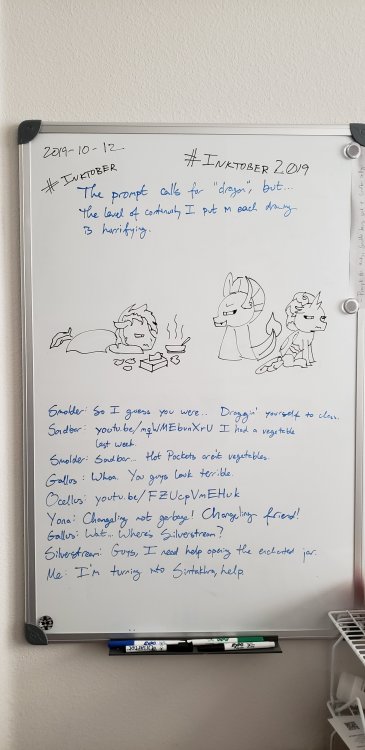 2019-10-12.
#INKTOBER 2019
#INKTOBER
The prompt calls for "dragon", but...
The level of continuity I put in each drawing
is horrifying.
Smolder: So I guess you were... Draggin' yourself to class.
Sandbar: youtu.be/mqWMEbvnXrU I had a vegetable
last week.
Smolder: Sandbar... Hot Pockets aren't vegetables.
Gallus: Whoa. You guys look terrible.
Ocellus: youtu.be/FZUcpVmEHuk
Yona: Changeling not garbage! Changeling friend!
Gallus: Wait... Where's Silverstream?
Silverstream: Guys, I need help opening the enchanted jar.
Me: I'm turning into help.
EXPO
EXPO